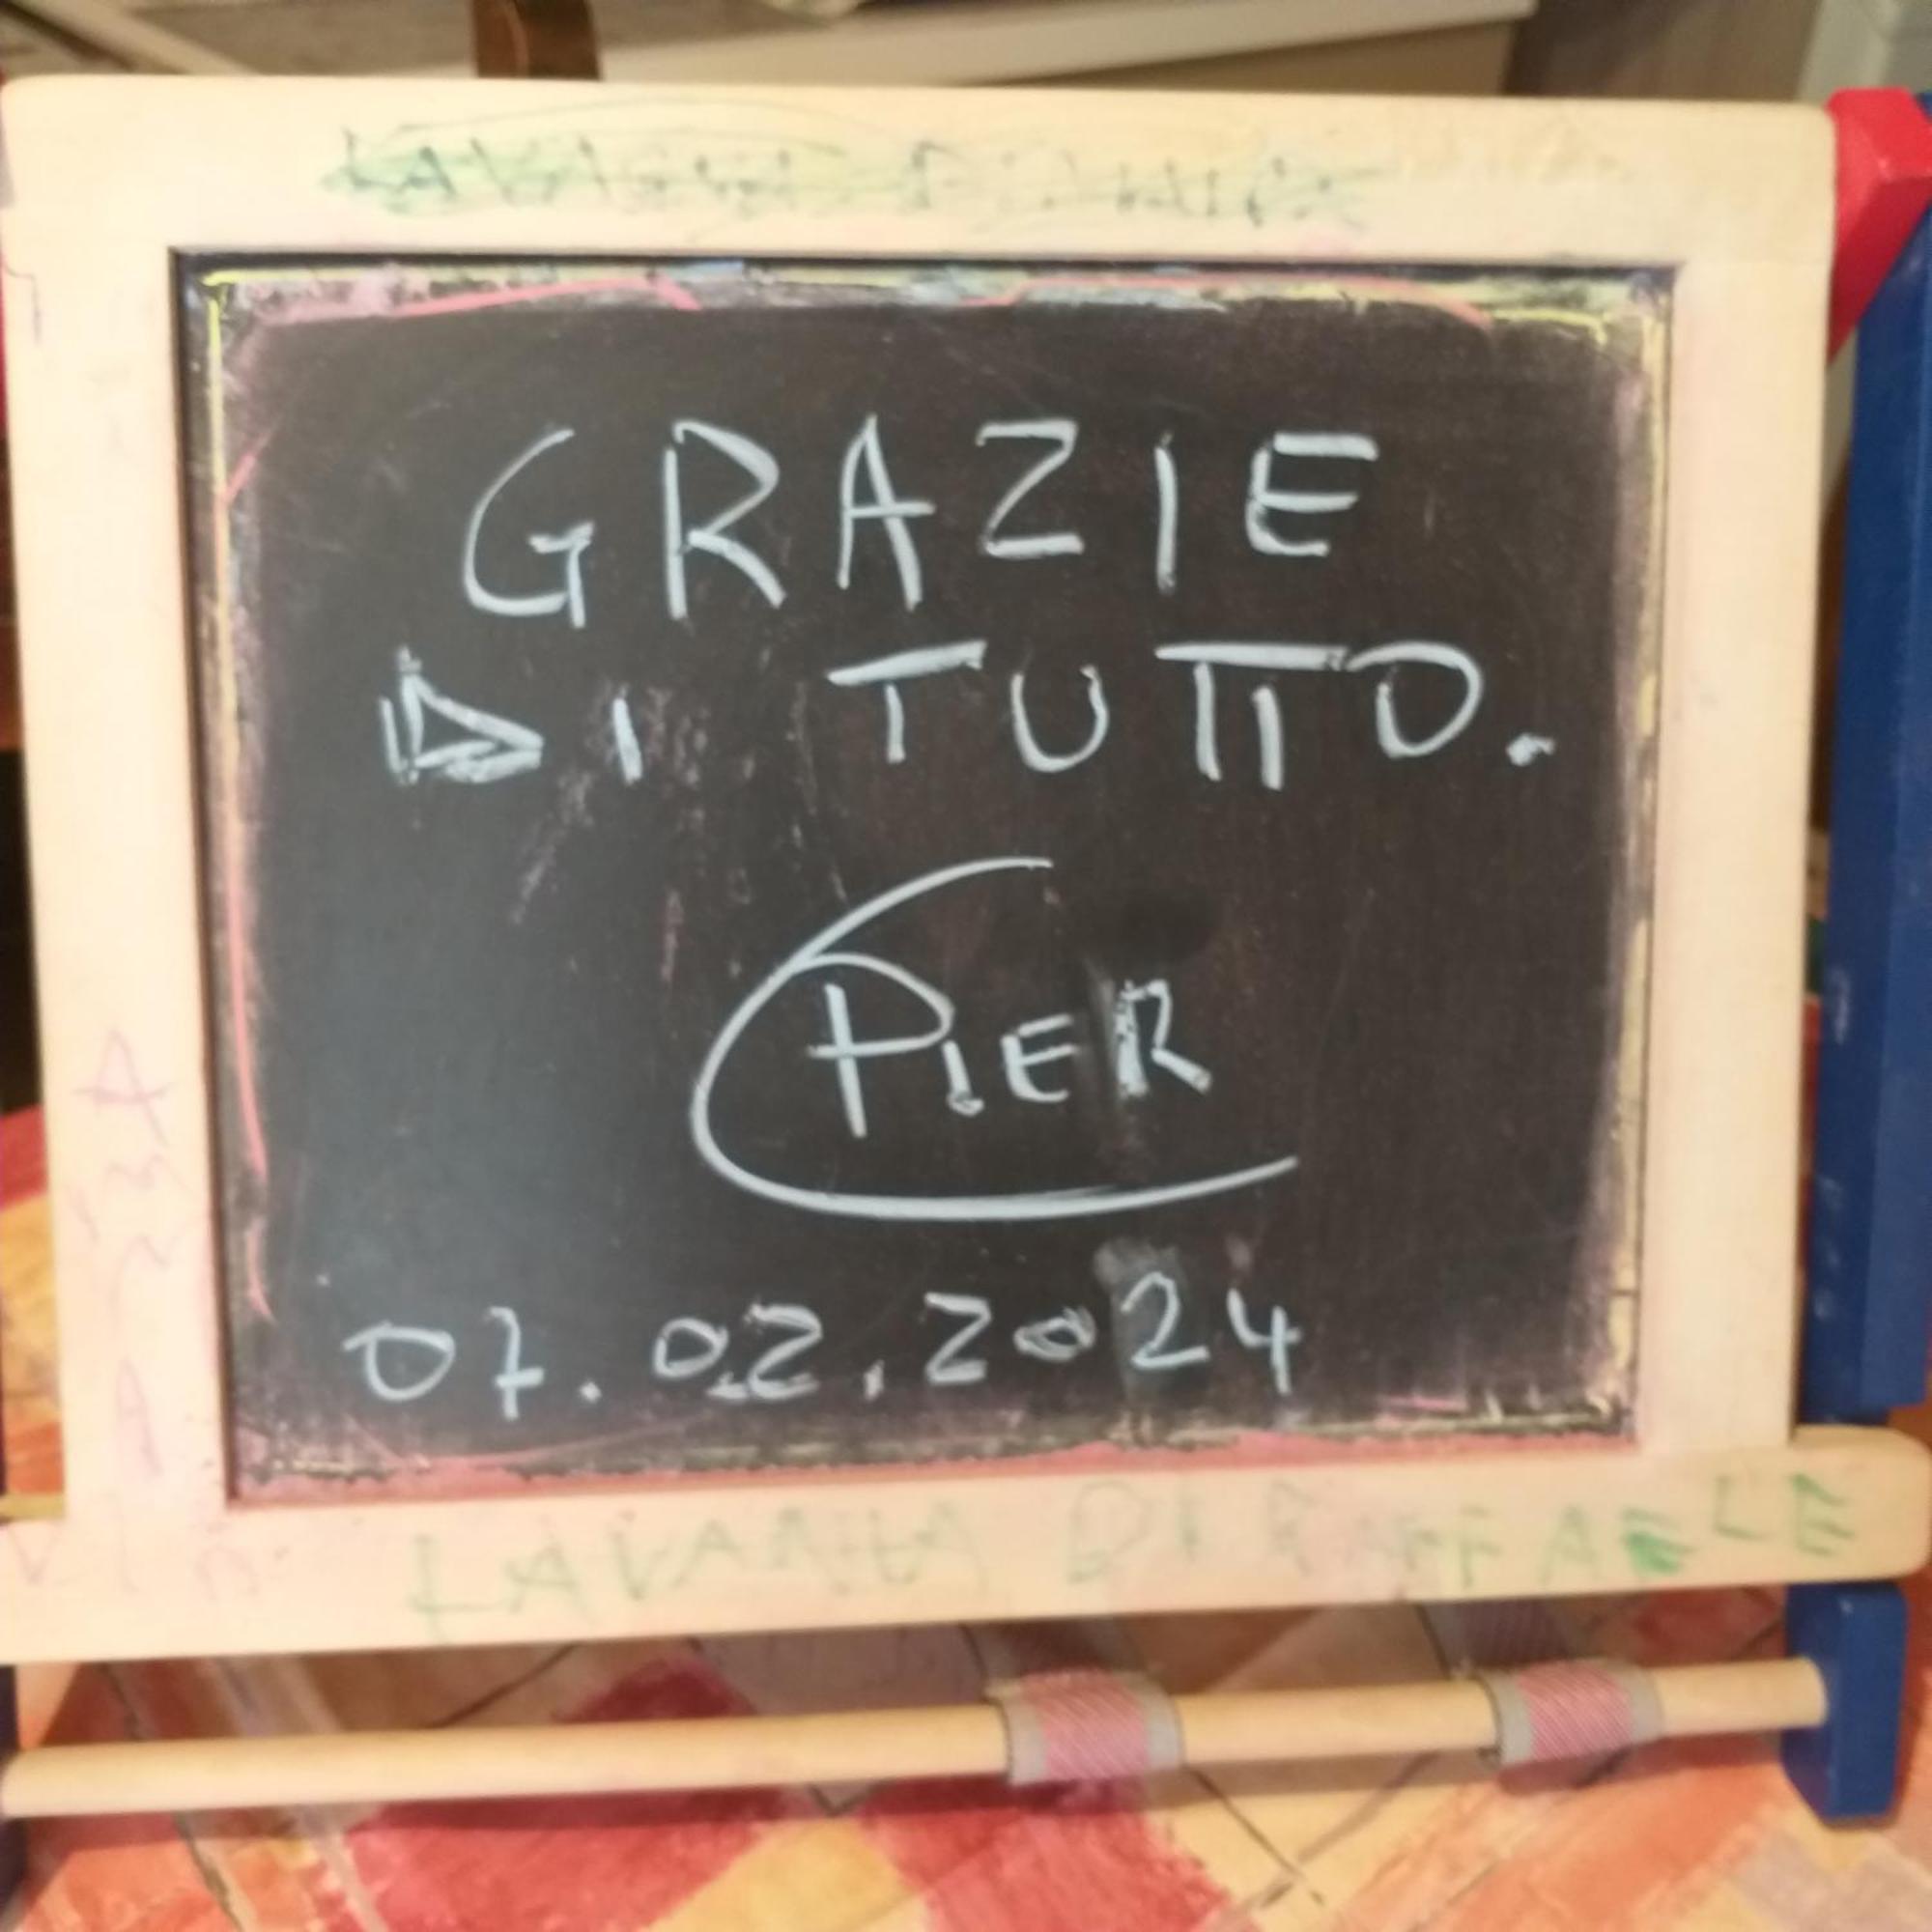 GRAZIE
DI TUTTO.
PIER
07.02.2024
LAVAGNA DI RAFFAELE